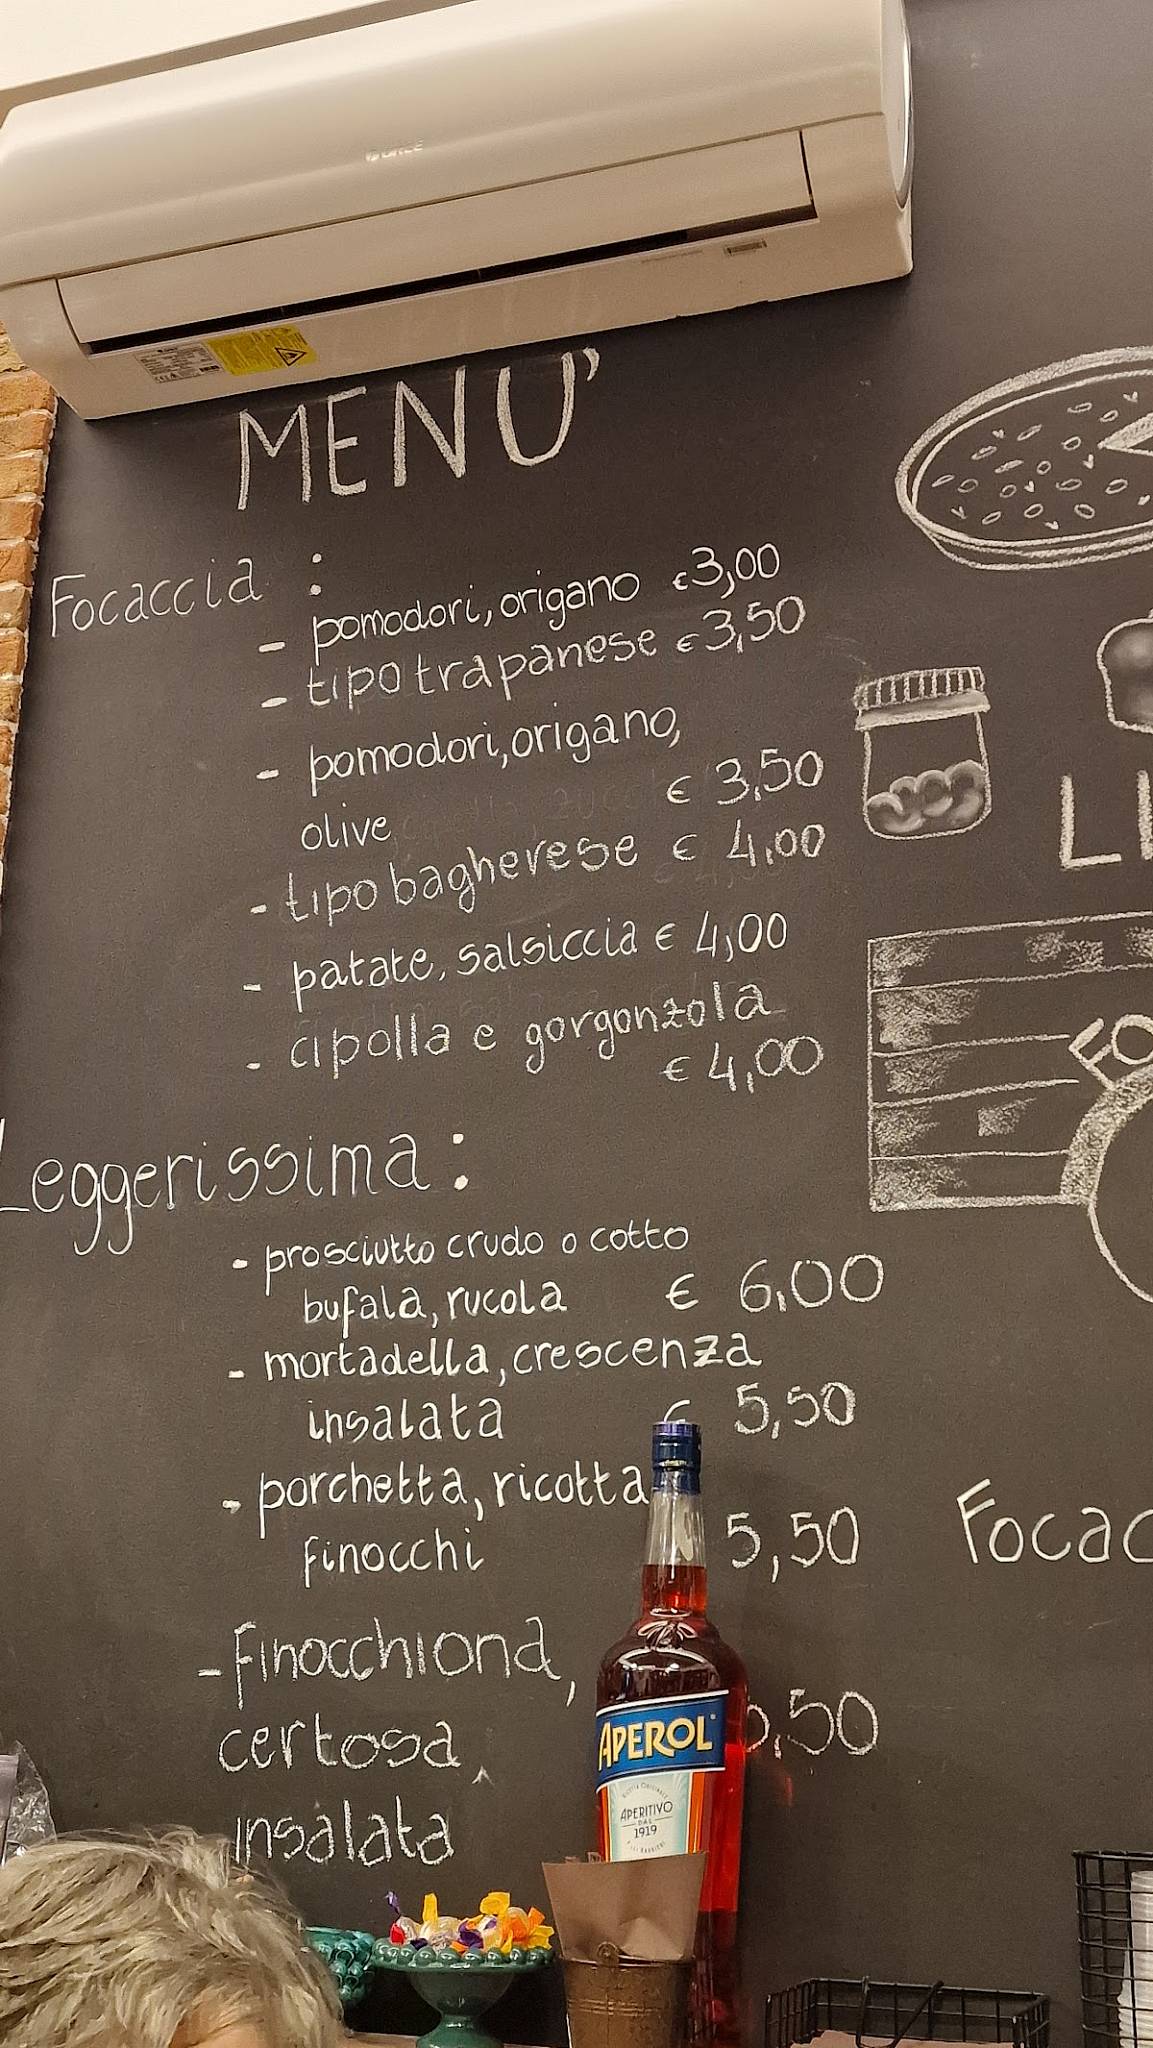 MENU'
Focaccia :
- pomodori, origano €3,00
- tipo trapanese €3,50
- pomodori, origano,
olive € 3,50
- tipo bagherese € 4,00
- patate, salsiccia € 4,00
- cipolla e gorgonzola
€ 4,00
Leggerissima :
- prosciutto crudo o cotto
bufala, rucola € 6,00
- mortadella, crescenza
insalata € 5,50
- porchetta, ricotta
finocchi 5,50
- Finocchiona,
certosa, ,50
insalata
LI
FO
Focac
APEROL
APERITIVO
DAL
1919